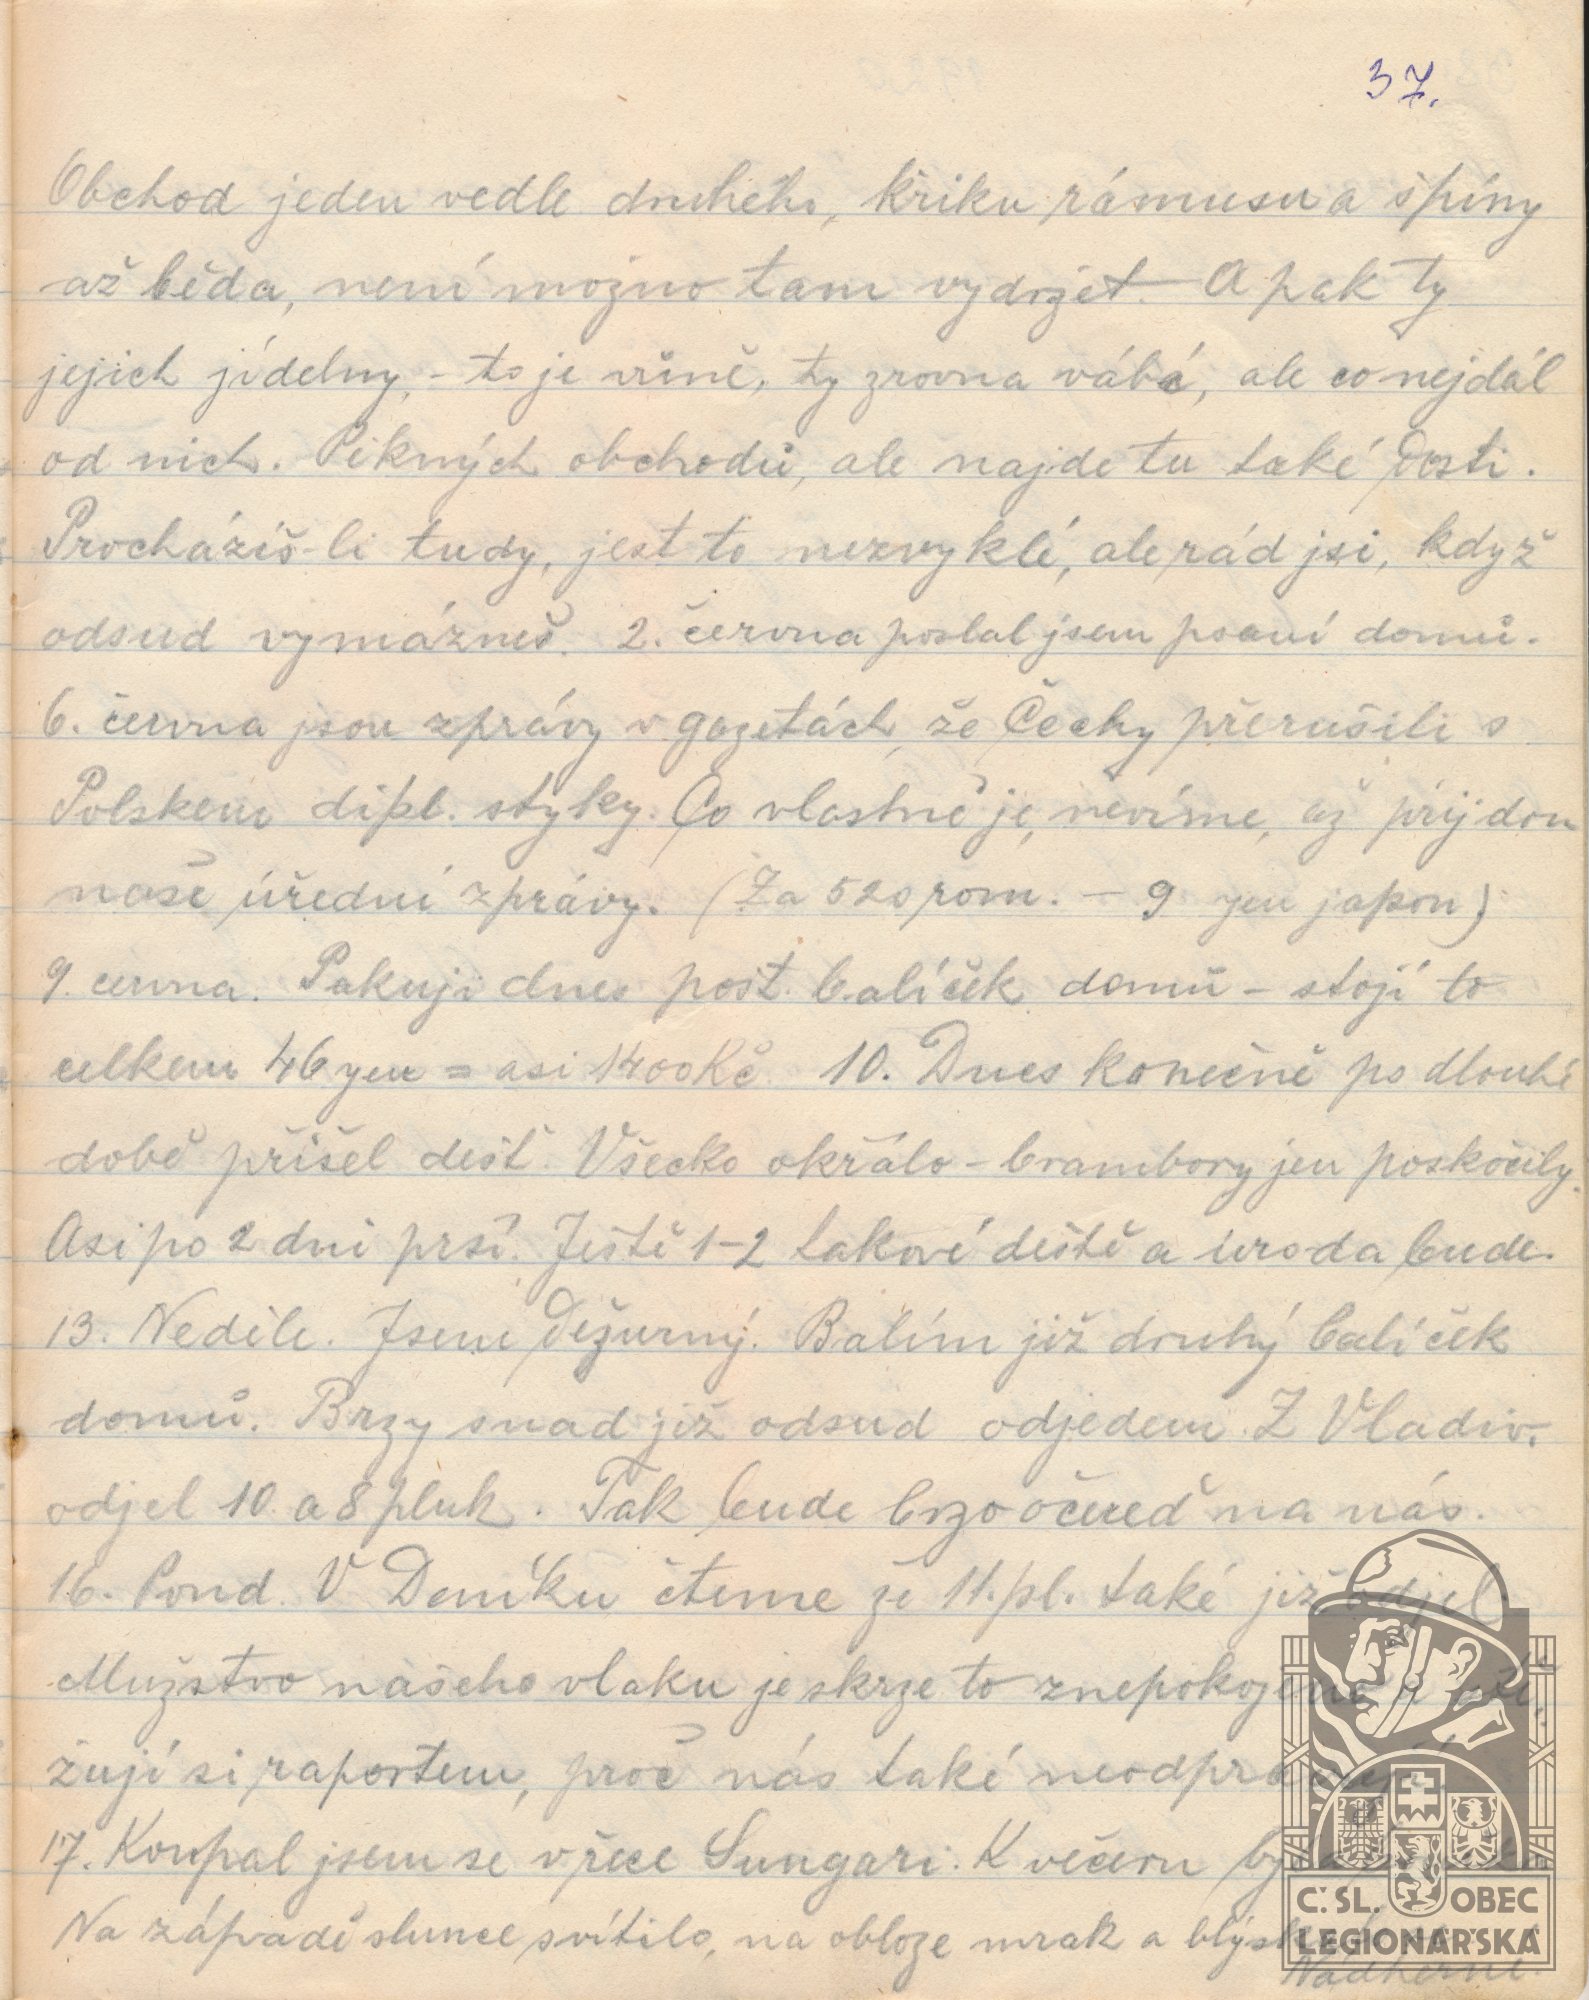 37.
Obchod jeden vedle druhého, křiku rámusu a špíny
až běda, není možno tam vydržet. A pak ty
jejich jídelny, - to je vůně, ty zrovna vábí, ale co nejdál
od nich. Pěkných obchodů, ale najde tu také dosti.
Procházíš-li tudy, jest to nezvyklé, ale rád jsi, když
odsud vymázneš. 2. června poslal jsem psaní domů.
6. června jsou zprávy v gazetách, že Čechy přerušili s
Polskem dipl. styky. Co vlastně je, nevíme, až přijdou
naše úřední zprávy. (Za 520 rom. - 9 yen japon)
9. cervna. Pakuji dnes pošt. balíček domů - stojí to
celkem 46 yen = asi 1400 Kč. 10. Dnes konečně po dlouhé
době přišel déšť. Všecko okřálo - brambory jen poskočily.
Asi po 2 dni prší. Ještě 1-2 takové deště a úroda bude.
13. Neděle. Jsem děžurný. Balím již druhý balíček
domů. Brzy snad již odsud odjedem. Z Vladiv.
odjel 10. a 8 pluk. Tak bude brzo očereď na nás.
16. Pond. V Deníku čteme že 11. pl. také již odjel.
Mužstvo našeho vlaku je skrze to znepokojené a
žují si raportem, proč nás také neodpravují.
17. Koupal jsem se v řece Sungari. K večeru
Na západě slunce svítilo, na obloze mrak a
Nádherné.
Č. SL. OBEC
LEGIONÁŘSKÁ